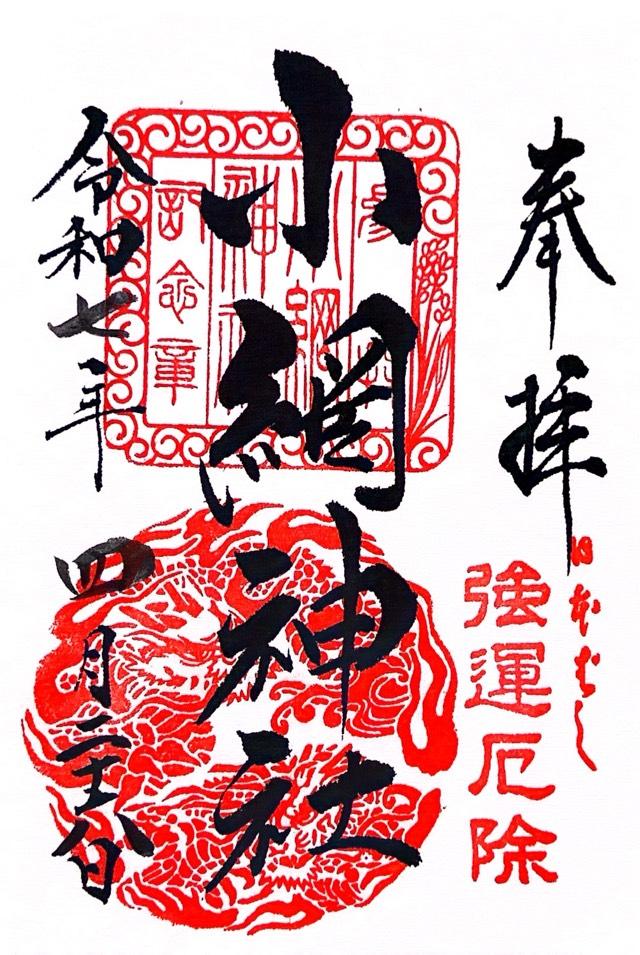 奉拝
日本ばし
強運厄除
小網神社
小網
神社
記念章
令和七年
四月二十八日